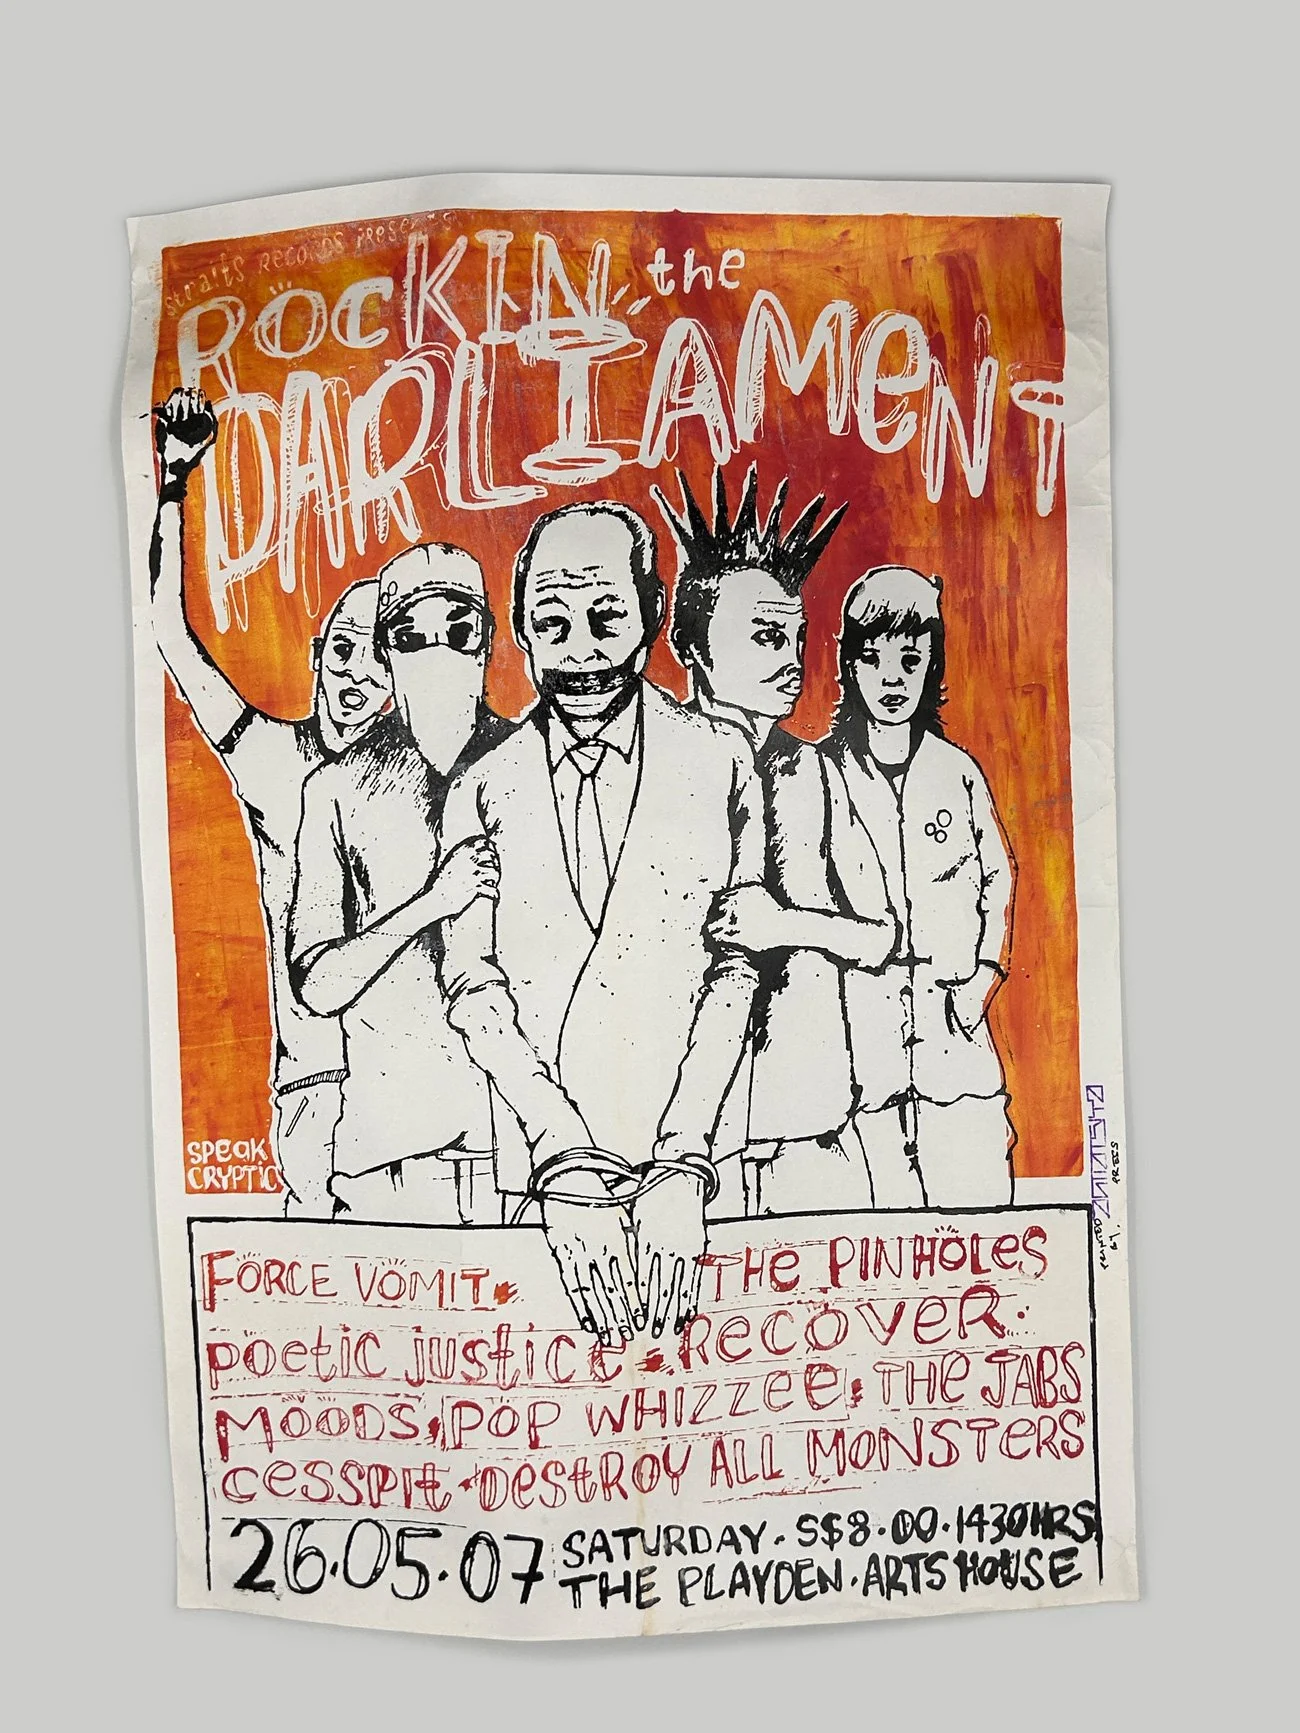 straits Records presents
RocKIN the
PARLIAMeNT
SPeak
CRYPTIC
PRESS
PRINTED by
FORCE VOMIT. THe PINHOLeS
Poetic justice. RecoveR.
MOODS. POP WHIZZee. THe JABS
cessPit. DestRoY ALL MONSTeRS
26.05.07 SATURDAY. S$8.00. 1430HRS
THE PLAYDEN. ARTS HOUSE